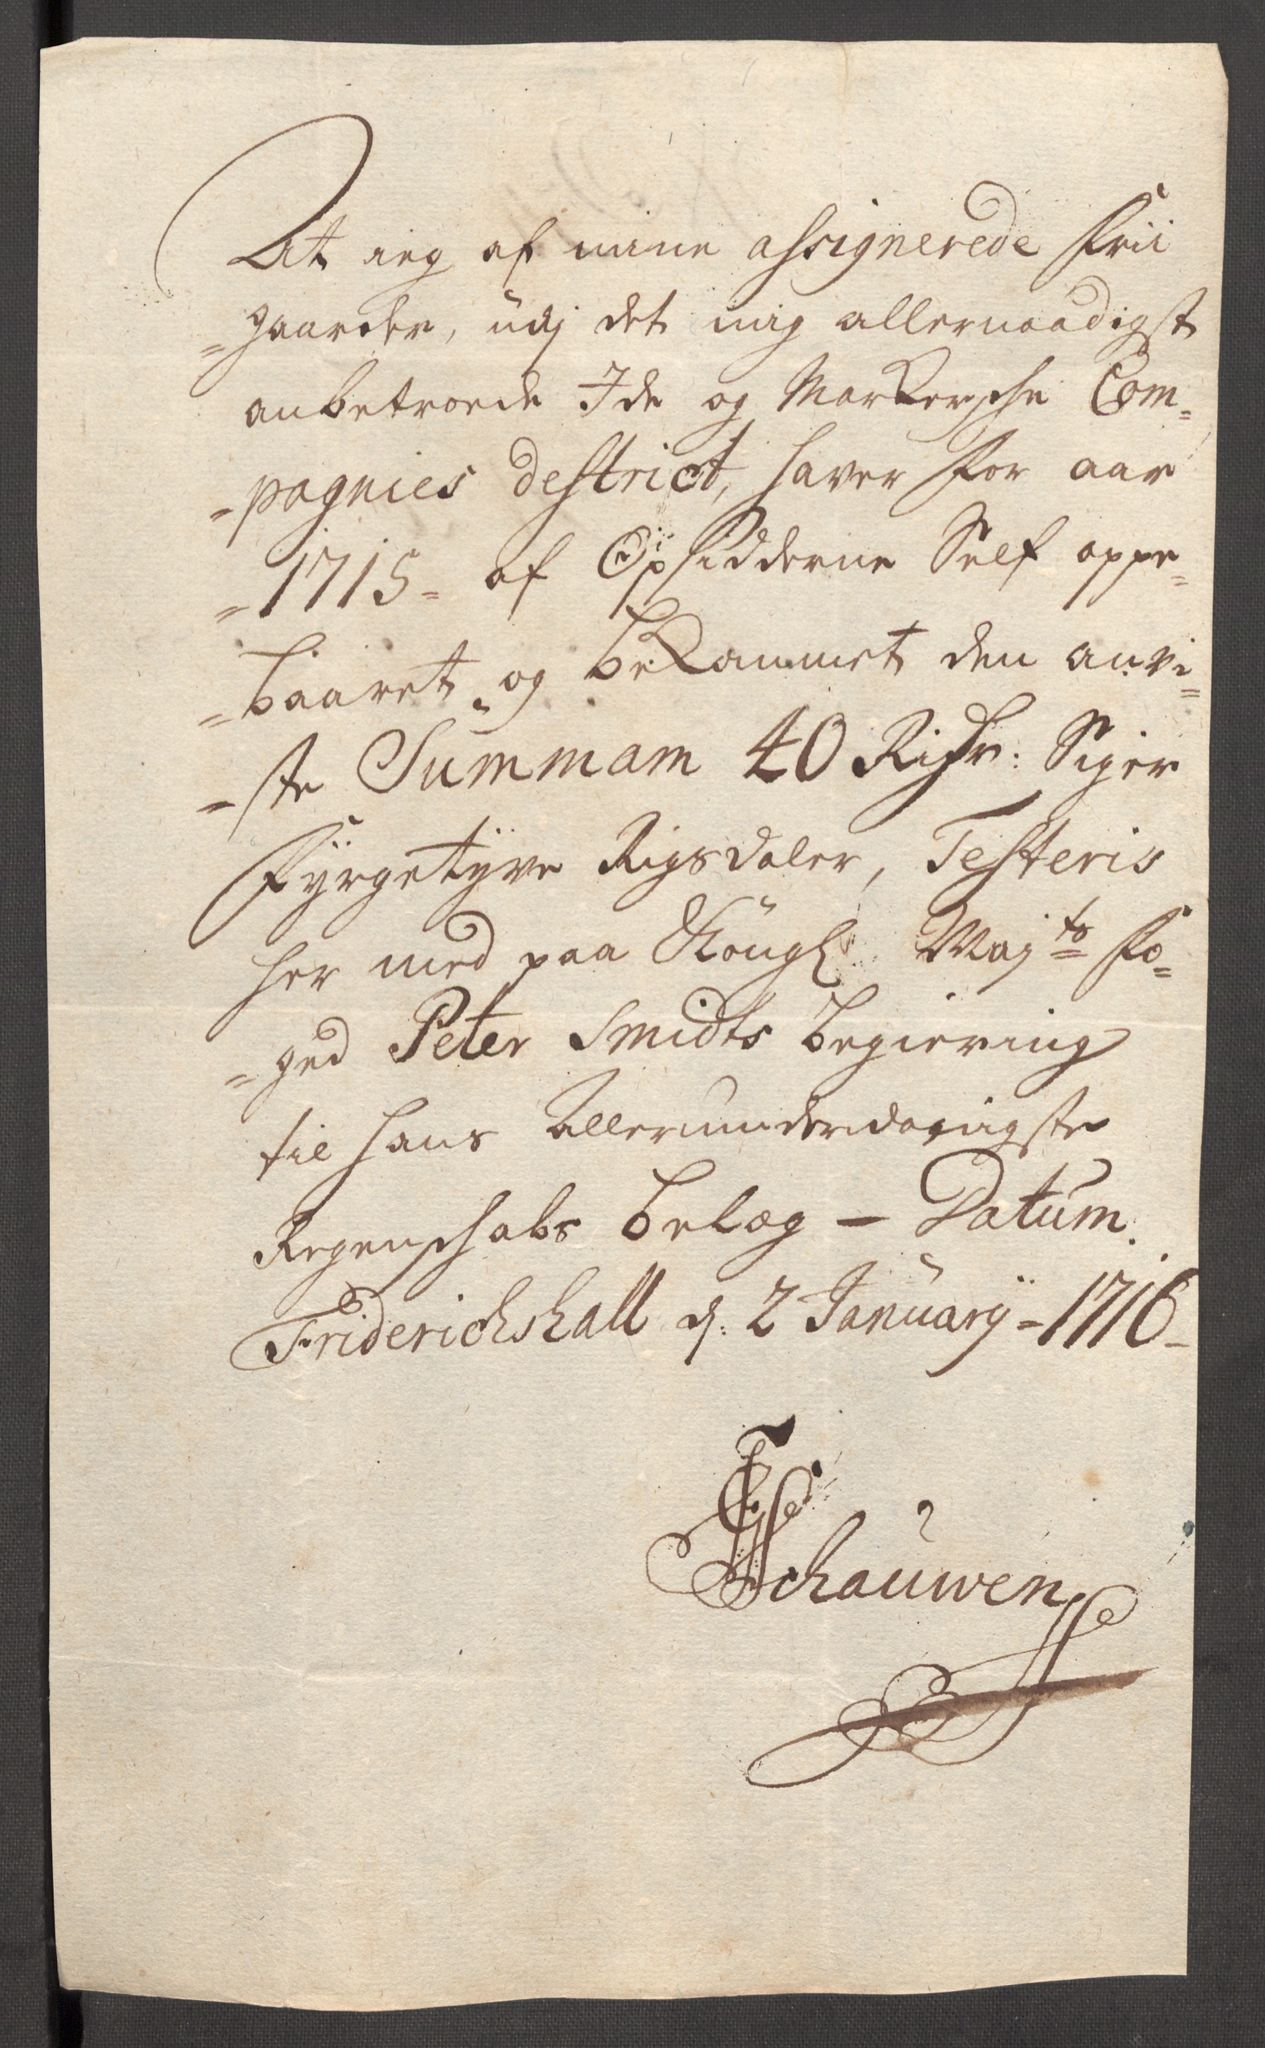 At ieg af mine assignerede Frii
=gaarder, udj det mig allernaadigst
anbetroede Ide og Markersche Com=
=pagnies destrict, hafver for aar
=1715= af Opsidderne Self oppe=
=baaret og bekommet den anvi=
=ste Summam 40 Rixdr: Siger
Fÿrgetyve Rigsdaler, Testeris
her med paa Kongl: Maj:ts Fo=
=ged Peter Smidts begiering
til hans Allerunderdanigste
Regenschabs belæg – Datum
Friderichshall d: 2 Januarÿ = 1716 –
Schauwen